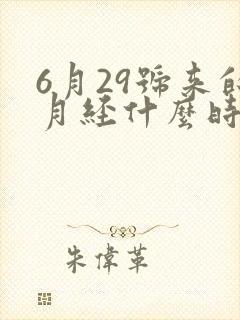 6月29號来的
月經什麼時
朱偉革